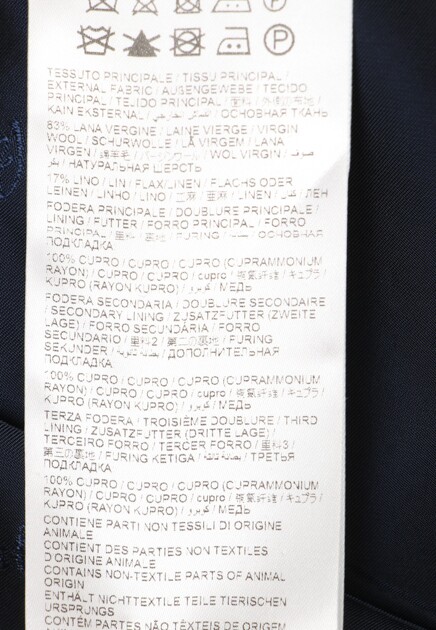 P
TESSUTO PRINCIPALE / TISSU PRINCIPAL /
EXTERNAL FABRIC / AUßENGEWEBE / TECIDO
PRINCIPAL / TEJIDO PRINCIPAL / 面料 /
KAIN EKSTERNAL / ОСНОВНАЯ ТКАНЬ
83% LANA VERGINE / LAINE VIERGE / VIRGIN
WOOL / SCHURWOLLE / LÃ VIRGEM / LANA
VIRGEN / WOL VIRGIN / صوف
/ НАТУРАЛЬНАЯ ШЕРСТЬ
17% LINO / LIN / FLAX/LINEN / FLACHS ODER
LEINEN / LINHO / LINO / 亚麻 / LINEN / ЛЕН
FODERA PRINCIPALE / DOUBLURE PRINCIPALE /
LINING / FUTTER / FORRO PRINCIPAL / FORRO
PRINCIPAL / 里料 / 裏地 / FURING / ОСНОВНАЯ
ПОДКЛАДКА
100% CUPRO / CUPRO / CUPRO (CUPRAMMONIUM
RAYON) / CUPRO / CUPRO / cupro / キュプラ /
KUPRO (RAYON KUPRO) / كوبرو / МЕДЬ
FODERA SECONDARIA / DOUBLURE SECONDAIRE
/ SECONDARY LINING / ZUSATZFUTTER (ZWEITE
LAGE) / FORRO SECUNDÁRIA / FORRO
SECUNDARIO / 里料2 / 第二の裏地 / FURING
SEKUNDER / بطانة ثانوية / ДОПОЛНИТЕЛЬНАЯ
ПОДКЛАДКА
100% CUPRO / CUPRO / CUPRO (CUPRAMMONIUM
RAYON) / CUPRO / CUPRO / cupro / キュプラ /
KUPRO (RAYON KUPRO) / كوبرو / МЕДЬ
TERZA FODERA / TROISIÈME DOUBLURE / THIRD
LINING / ZUSATZFUTTER (DRITTE LAGE) /
TERCEIRO FORRO / TERCER FORRO / 里料3 /
第三の裏地 / FURING KETIGA / بطانة ثالثة / ТРЕТЬЯ
ПОДКЛАДКА
100% CUPRO / CUPRO / CUPRO (CUPRAMMONIUM
RAYON) / CUPRO / CUPRO / cupro / キュプラ /
KUPRO (RAYON KUPRO) / كوبرو / МЕДЬ
CONTIENE PARTI NON TESSILI DI ORIGINE
ANIMALE
CONTIENT DES PARTIES NON TEXTILES
D'ORIGINE ANIMALE
CONTAINS NON-TEXTILE PARTS OF ANIMAL
ORIGIN
ENTHÄLT NICHTTEXTILE TEILE TIERISCHEN
URSPRUNGS
CONTÉM PARTES NÃO TÊXTEIS DE ORIGEM